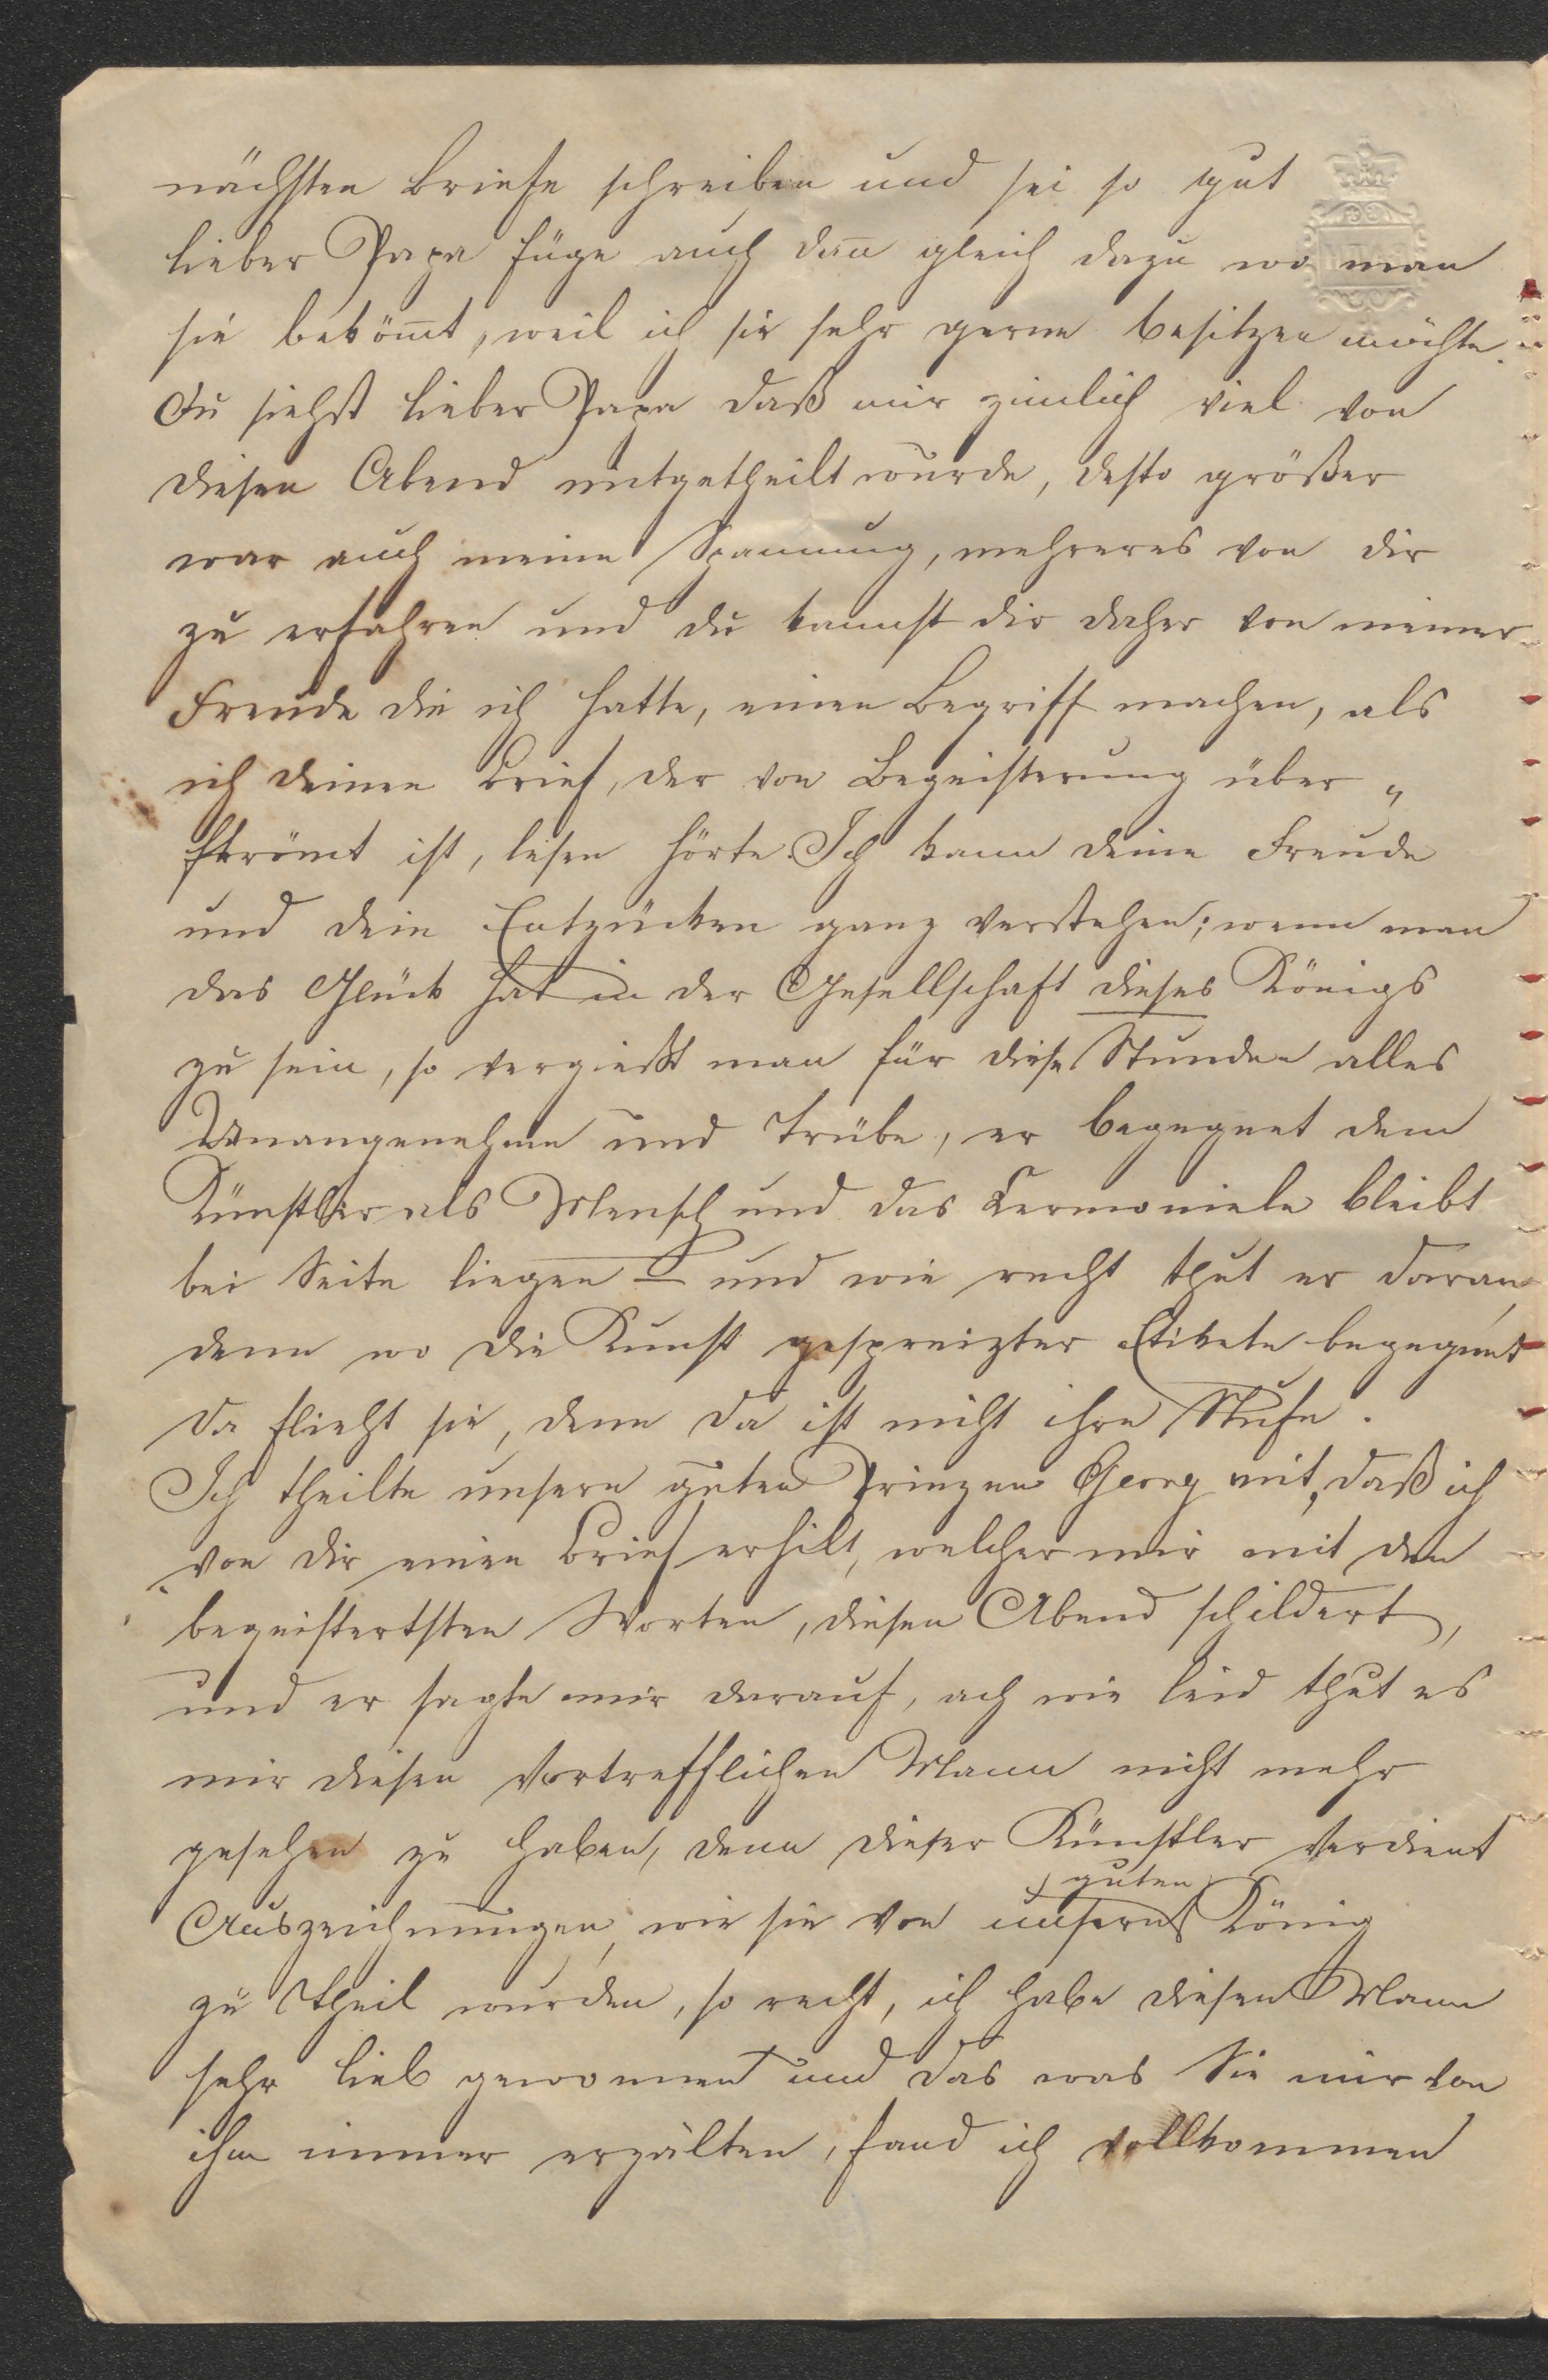 nächsten Briefe schreiben und sei so gut
lieber Papa füge auch dan̄ gleich dazu wo man
sie beköm̄t, weil ich sie sehr gerne besitzen möchte.
Du siehst lieber Papa daß mir zimlich viel von
diesen Abend mitgetheilt wurde, desto größer
war auch meine Spannung, mehreres von dir
zu erfahren und du kannst dir daher von meiner
Freude die ich hatte, einen Begriff machen, als
ich deinen Brief, der von Begeisterung über„
strömt ist, lesen hörte. Ich kann deine Freude
und dein Entzücken ganz verstehen; wenn man
das Glück hat in der Gesellschaft dieses Königs
zu sein, so vergießt man für diese Stunden alles
Unangenehme und Trübe, er begegnet dem
Künstler als Mensch und das Cermoniele bleibt
bei Seite liegen – und wie recht thut er daran,
denn wo die Kunst gespreizter Etikete begegnet
da flieht sie, denn da ist nicht ihre Stufe.
Ich theilte unsern guten Prinzen Georg mit, daß ich
von dir einen Brief erhilt, welcher mir mit den
begeistertsten Worten, diesen Abend schildert,
und er sagte mir darauf, ach wie leid thut es
mir diesen Vortrefflichen Mann nicht mehr
gesehen zu haben, denn dieser Künstler verdient
guten
Auszeichnungen, wie sie von unsern König
zu Theil wurden, so recht, ich habe diesen Mann
sehr lieb gewonnen und das was Sie mir von
ihm immer erzälten, fand ich vollkommen